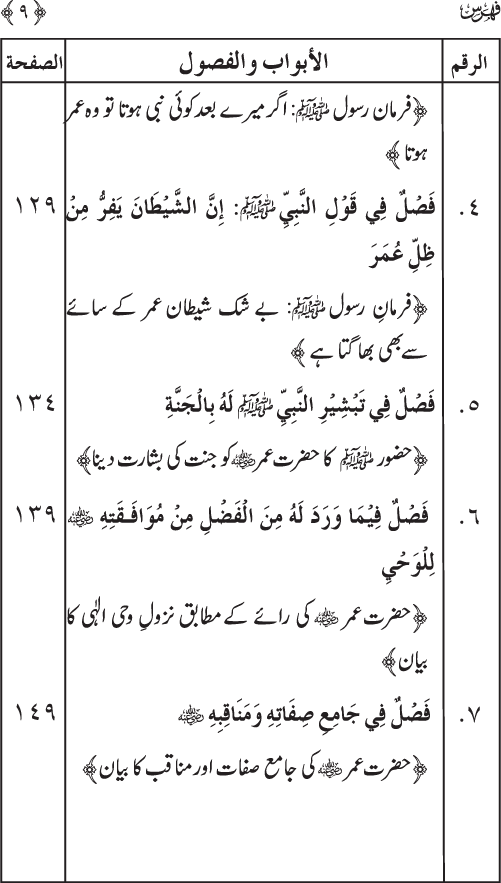 فہرس ﴿٩﴾
الرقم الأبواب والفصول الصفحة
﴿فرمان رسول ﷺ: اگر میرے بعد کوئی نبی ہوتا تو وہ عمر
ہوتا﴾
٤. فَصْلٌ فِي قَوْلِ النَّبِيِّ ﷺ: إِنَّ الشَّيْطَانَ يَفِرُّ مِنْ ١٢٩
ظِلِّ عُمَرَ
﴿فرمانِ رسول ﷺ: بے شک شیطان عمر کے سائے
سے بھی بھاگتا ہے﴾
٥. فَصْلٌ فِي تَبْشِيْرِ النَّبِيِّ ﷺ لَهُ بِالْجَنَّةِ ١٣٤
﴿حضور ﷺ کا حضرت عمر رضی اللہ عنہ کو جنت کی بشارت دینا﴾
٦. فَصْلٌ فِيْمَا وَرَدَ لَهُ مِنَ الْفَضْلِ مِنْ مُوَافَقَتِهِ رضی اللہ عنہ ١٣٩
لِلْوَحْيِ
﴿حضرت عمر رضی اللہ عنہ کی رائے کے مطابق نزولِ وحی الٰہی کا
بیان﴾
٧. فَصْلٌ فِي جَامِعِ صِفَاتِهِ وَمَنَاقِبِهِ رضی اللہ عنہ ١٤٩
﴿حضرت عمر رضی اللہ عنہ کی جامع صفات اور مناقب کا بیان﴾